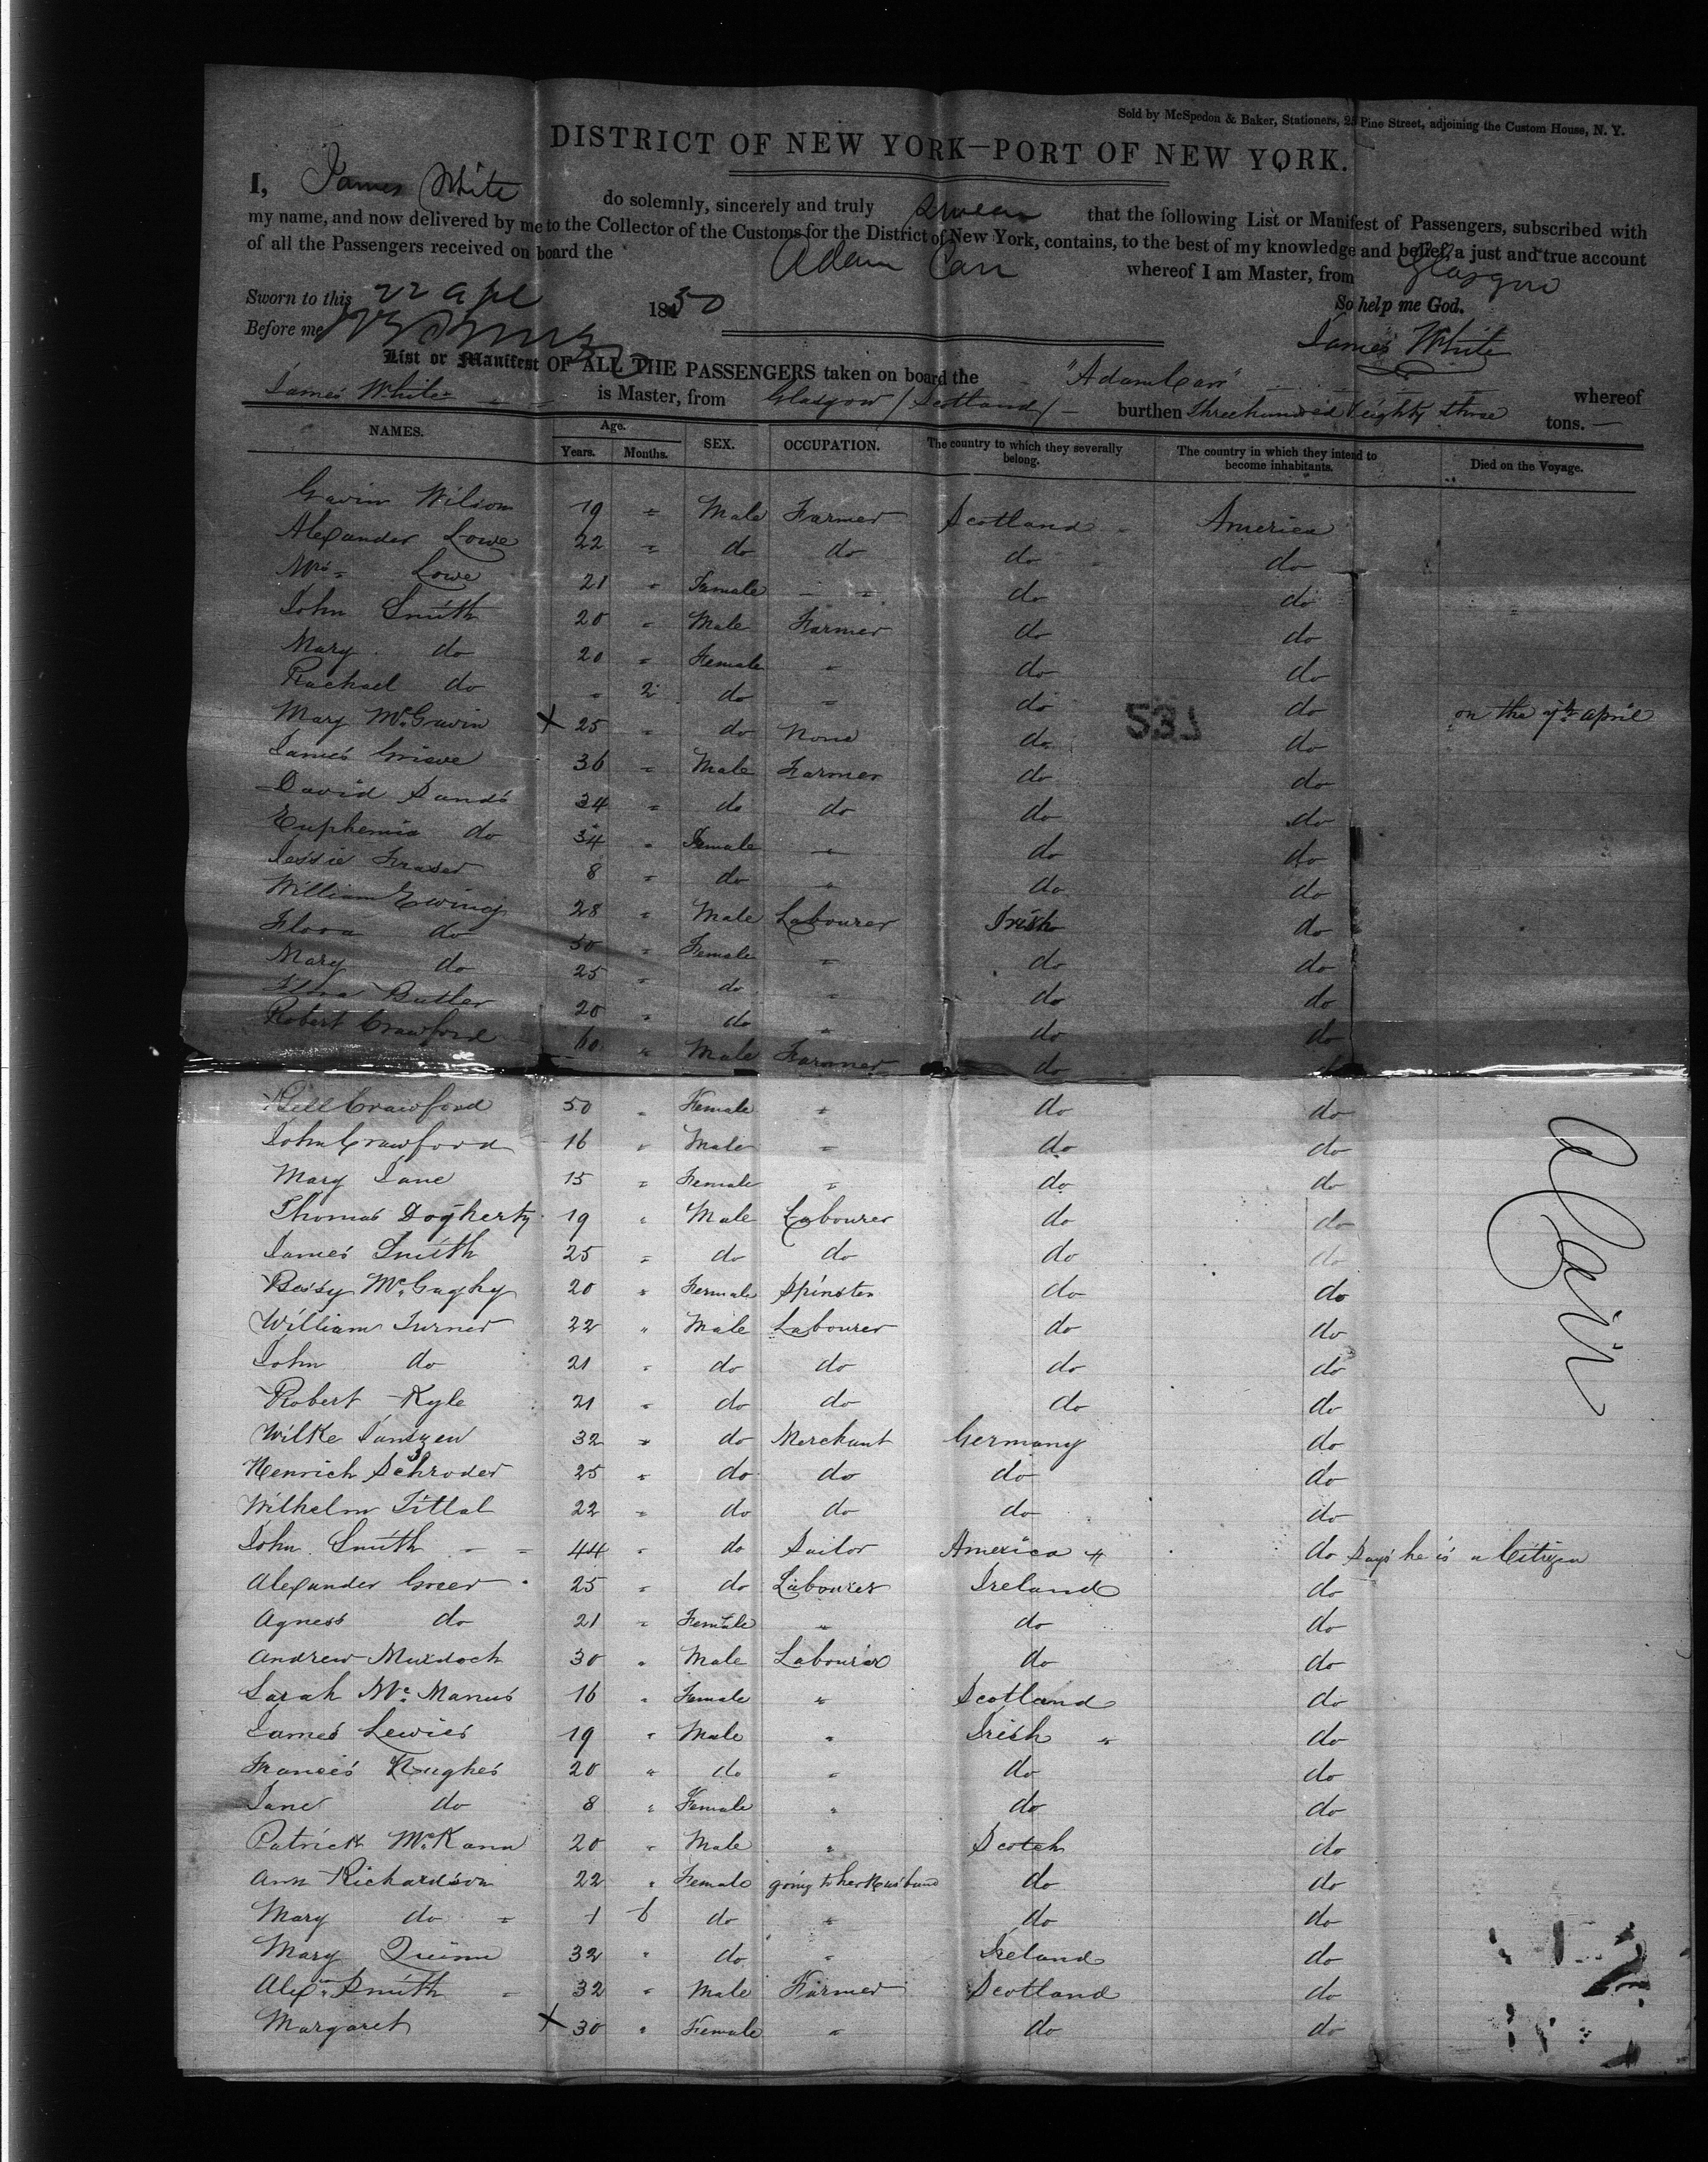 Sold by McSpedon & Baker, Stationers, 25 Pine Street, adjoining the Custom House, N. Y.
DISTRICT OF NEW YORK—PORT OF NEW YORK.
I, James White do solemnly, sincerely and truly swear that the following List or Manifest of Passengers, subscribed with
my name, and now delivered by me to the Collector of the Customs for the District of New York, contains, to the best of my knowledge and belief, a just and true account
of all the Passengers received on board the Adam Carr whereof I am Master, from Glasgow
Sworn to this 22 Apl 1850 So help me God.
Before me James White
List or Manifest OF ALL THE PASSENGERS taken on board the "Adam Carr" whereof
James White is Master, from Glasgow / Scotland / burthen Three hundred & eighty three tons.
NAMES. Age. Years. Months. SEX. OCCUPATION. The country to which they severally belong. The country in which they intend to become inhabitants. Died on the Voyage.
Gavin Wilson 19 " Male Farmer Scotland America
Alexander Lowe 22 " do do do do
Mrs Lowe 21 " Female " do do
John Smith 20 " Male Farmer do do
Mary do 20 " Female " do do
Rachael do " 2 do " do do on the 7th April
Mary McGavin X 25 " do None do do
531
James Grieve 36 " Male Farmer do do
David Sands 34 " do do do do
Euphemia do 34 " Female " do do
Jessie Fraser 8 " do " do do
William Ewing 28 " Male Labourer Irish do
Flora do 50 " Female " do do
Mary do 25 " do " do do
Flora Butler 20 " do " do do
Robert Crawford 60 " Male Farmer do do
Bell Crawford 50 " Female " do do
John Crawford 16 " Male " do do
Mary Jane 15 " Female " do do
Thomas Dogherty 19 " Male Labourer do do
James Smith 25 " do do do do
Bessy McGughy 20 " Female Spinster do do
William Turner 22 " Male Labourer do do
John do 21 " do do do do
Robert Kyle 21 " do do do do
Wilke Janszen 32 " do Merchant Germany do
Henrich Schroder 25 " do do do do
Wilhelm Tittal 22 " do do do do
John Smith 44 " do Sailor America do Says he is a Citizen
Alexander Greer 25 " do Labourer Ireland do
Agness do 21 " Female " do do
Andrew Murdoch 30 " Male Labourer do do
Sarah McManus 16 " Female " Scotland do
James Lewies 19 " Male " Irish " do
Francis Hughes 20 " do " do do
Jane do 8 " Female " do do
Patrick McKann 20 " Male " Scotch do
Ann Richardson 22 " Female going to her Husband do do
Mary do 1 6 do " do do
Mary Quinn 32 " do " Ireland do
Alexr Smith 32 " Male Farmer Scotland do
Margaret X 30 " Female " do do
A Carr